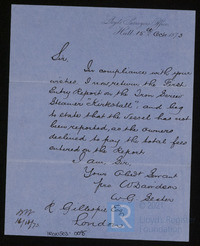 Lloyd's Surveyors' Office
Hull 15th Octr 1873
Sir,
In compliance with your
wishes I now return the First
Entry Report on the Iron Screw
Steamer "Kirkstall", and beg
to state that the Vessel has not
been reported, as the owners
declined to pay the total fees
entered on the Report.
I am Sir,
Your Obdt Servant
pro W Dawdens
W. G.
R Gillespie
London
16/10/73